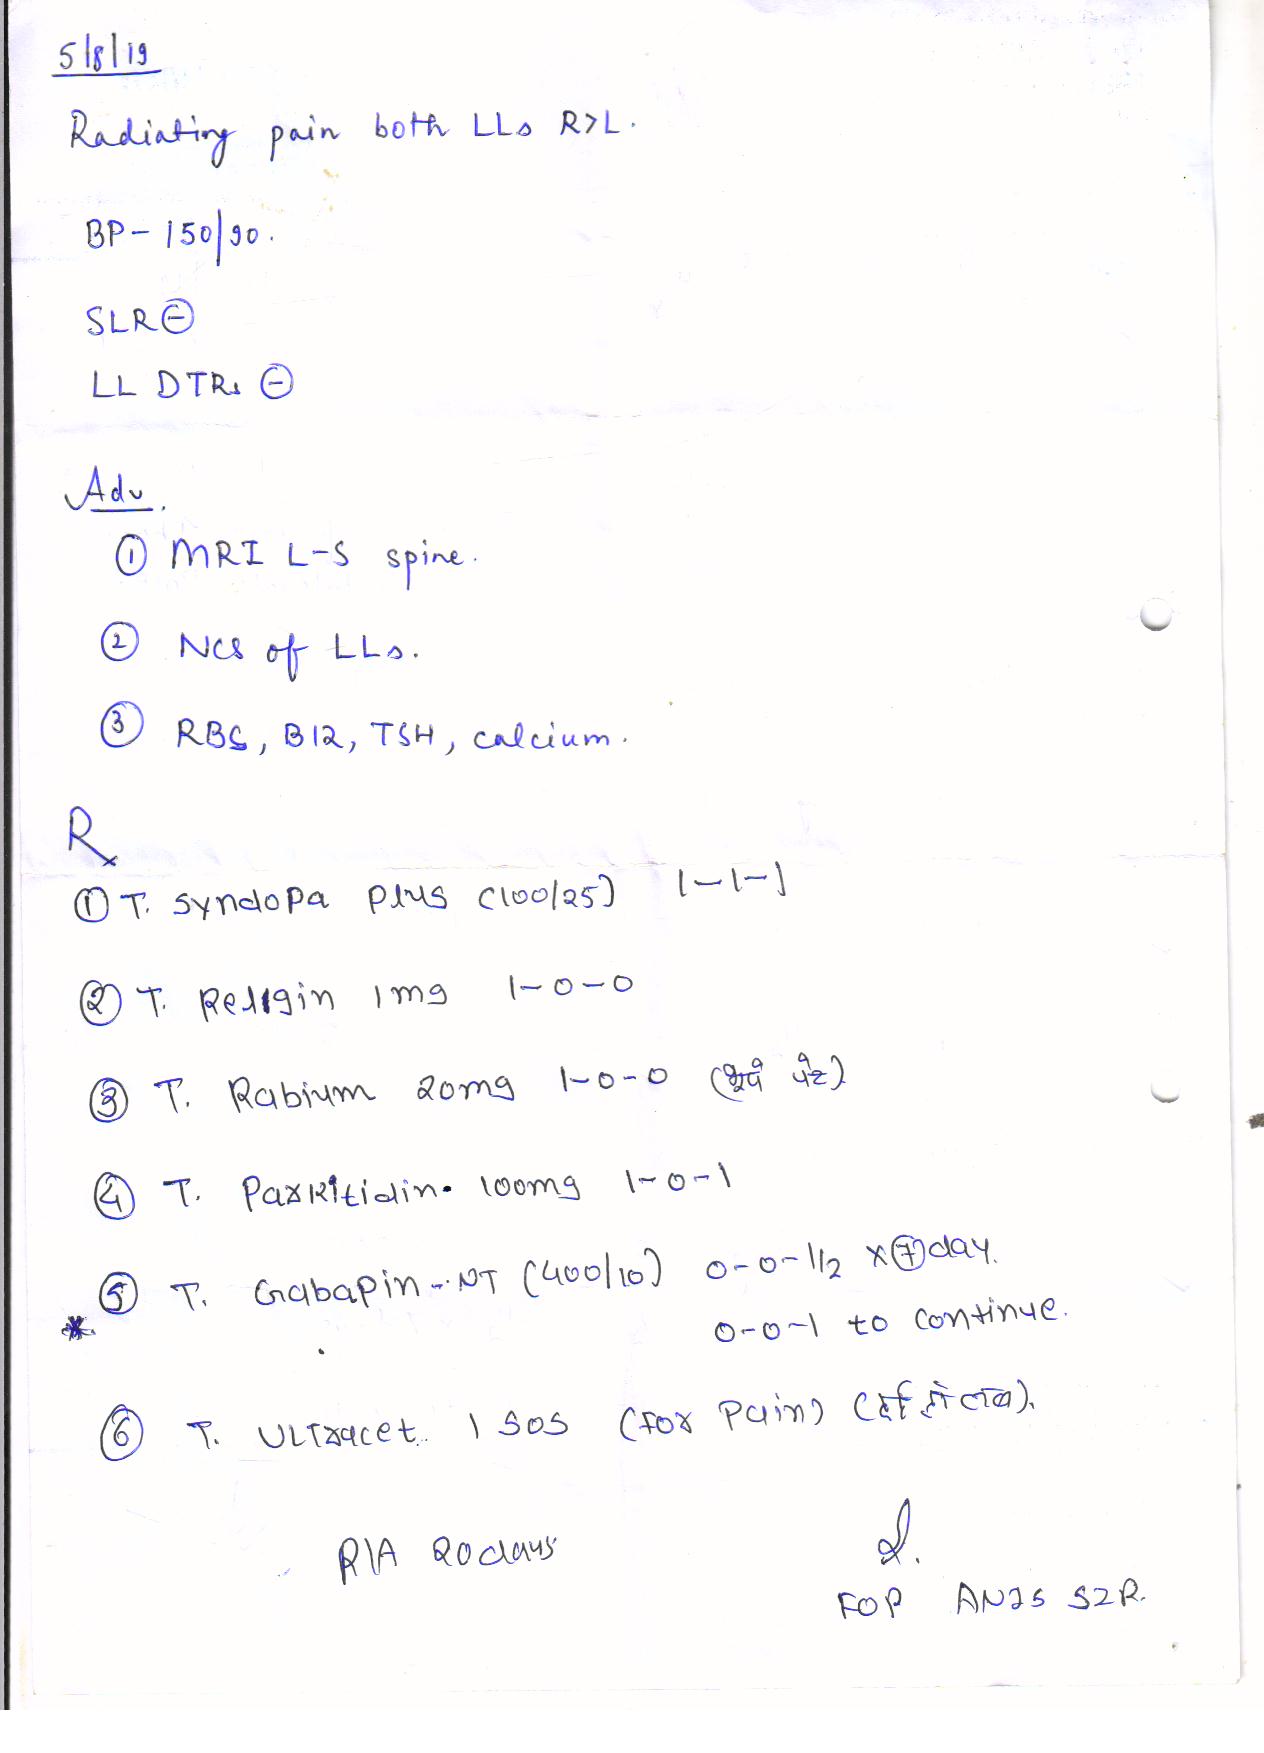 5/8/19
Radiating pain both LLs R>L.
BP- 150/90.
SLR ⊖
LL DTRs ⊖
Adv.
① MRI L-S spine.
② NCS of LLs.
③ RBS, B12, TSH, calcium.
Rx
① T. Syndopa Plus (100/25) 1-1-1
② T. Rellgin 1mg 1-0-0
③ T. Rabium 20mg 1-0-0 (भुखे पेट)
④ T. Parkitidin. 100mg 1-0-1
⑤ T. Gabapin-NT (400/10) 0-0-1/2 x ⑦ day.
* 0-0-1 to continue.
⑥ T. Ultracet 1 SOS (for Pain)
R/A 20 days
FOP ANIS SIR.